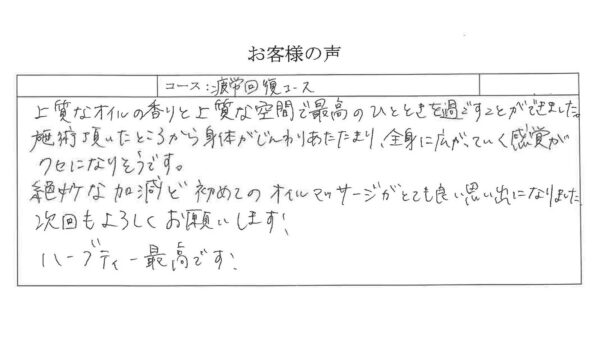 お客様の声
コース:疲労回復コース
上質なオイルの香りと上質な空間で最高のひとときを過ごすことができました。
施術頂いたところから身体がじんわりあたたまり、全身に広がっていく感覚が
クセになりそうです。
絶妙な加減で初めてのオイルマッサージがとても良い思い出になりました
次回もよろしくお願いします!
ハーブティー最高です!